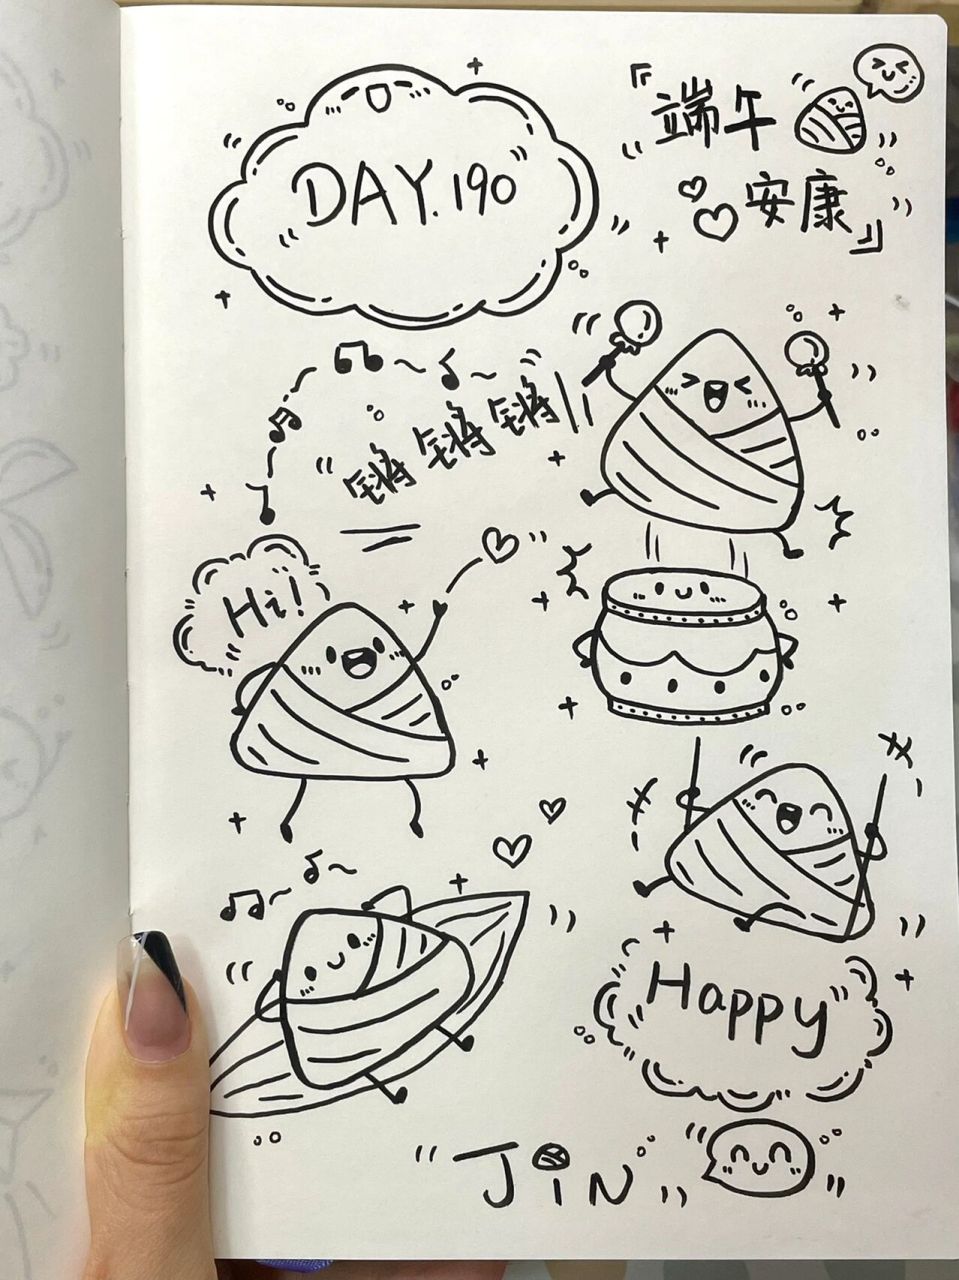 DAY.190
『端午
安康』
锵锵锵!!
Hi!
Happy
JiN